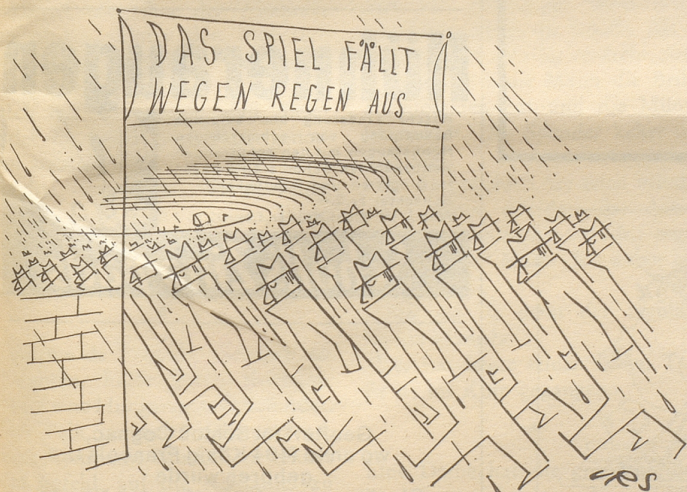 DAS SPIEL FÄLLT
WEGEN REGEN AUS